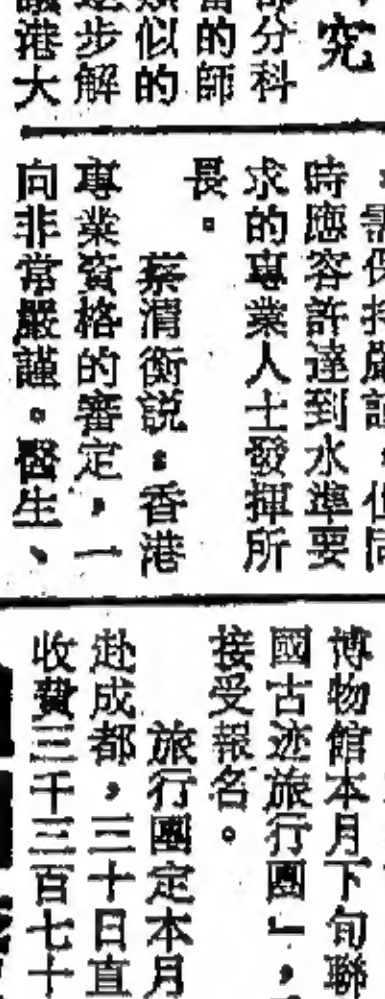 究
部分科
的師
似的
步解
港大
需保持嚴謹，但同
時應容許達到水準要
求的專業人士發揮所
長。
蔡渭衡說：香港
專業資格的審定，一
向非常嚴謹。醫生、
博物館本月下旬聯
國古迹旅行團」，
接受報名。
旅行團定本月
赴成都，三十日直
收費三千三百七十